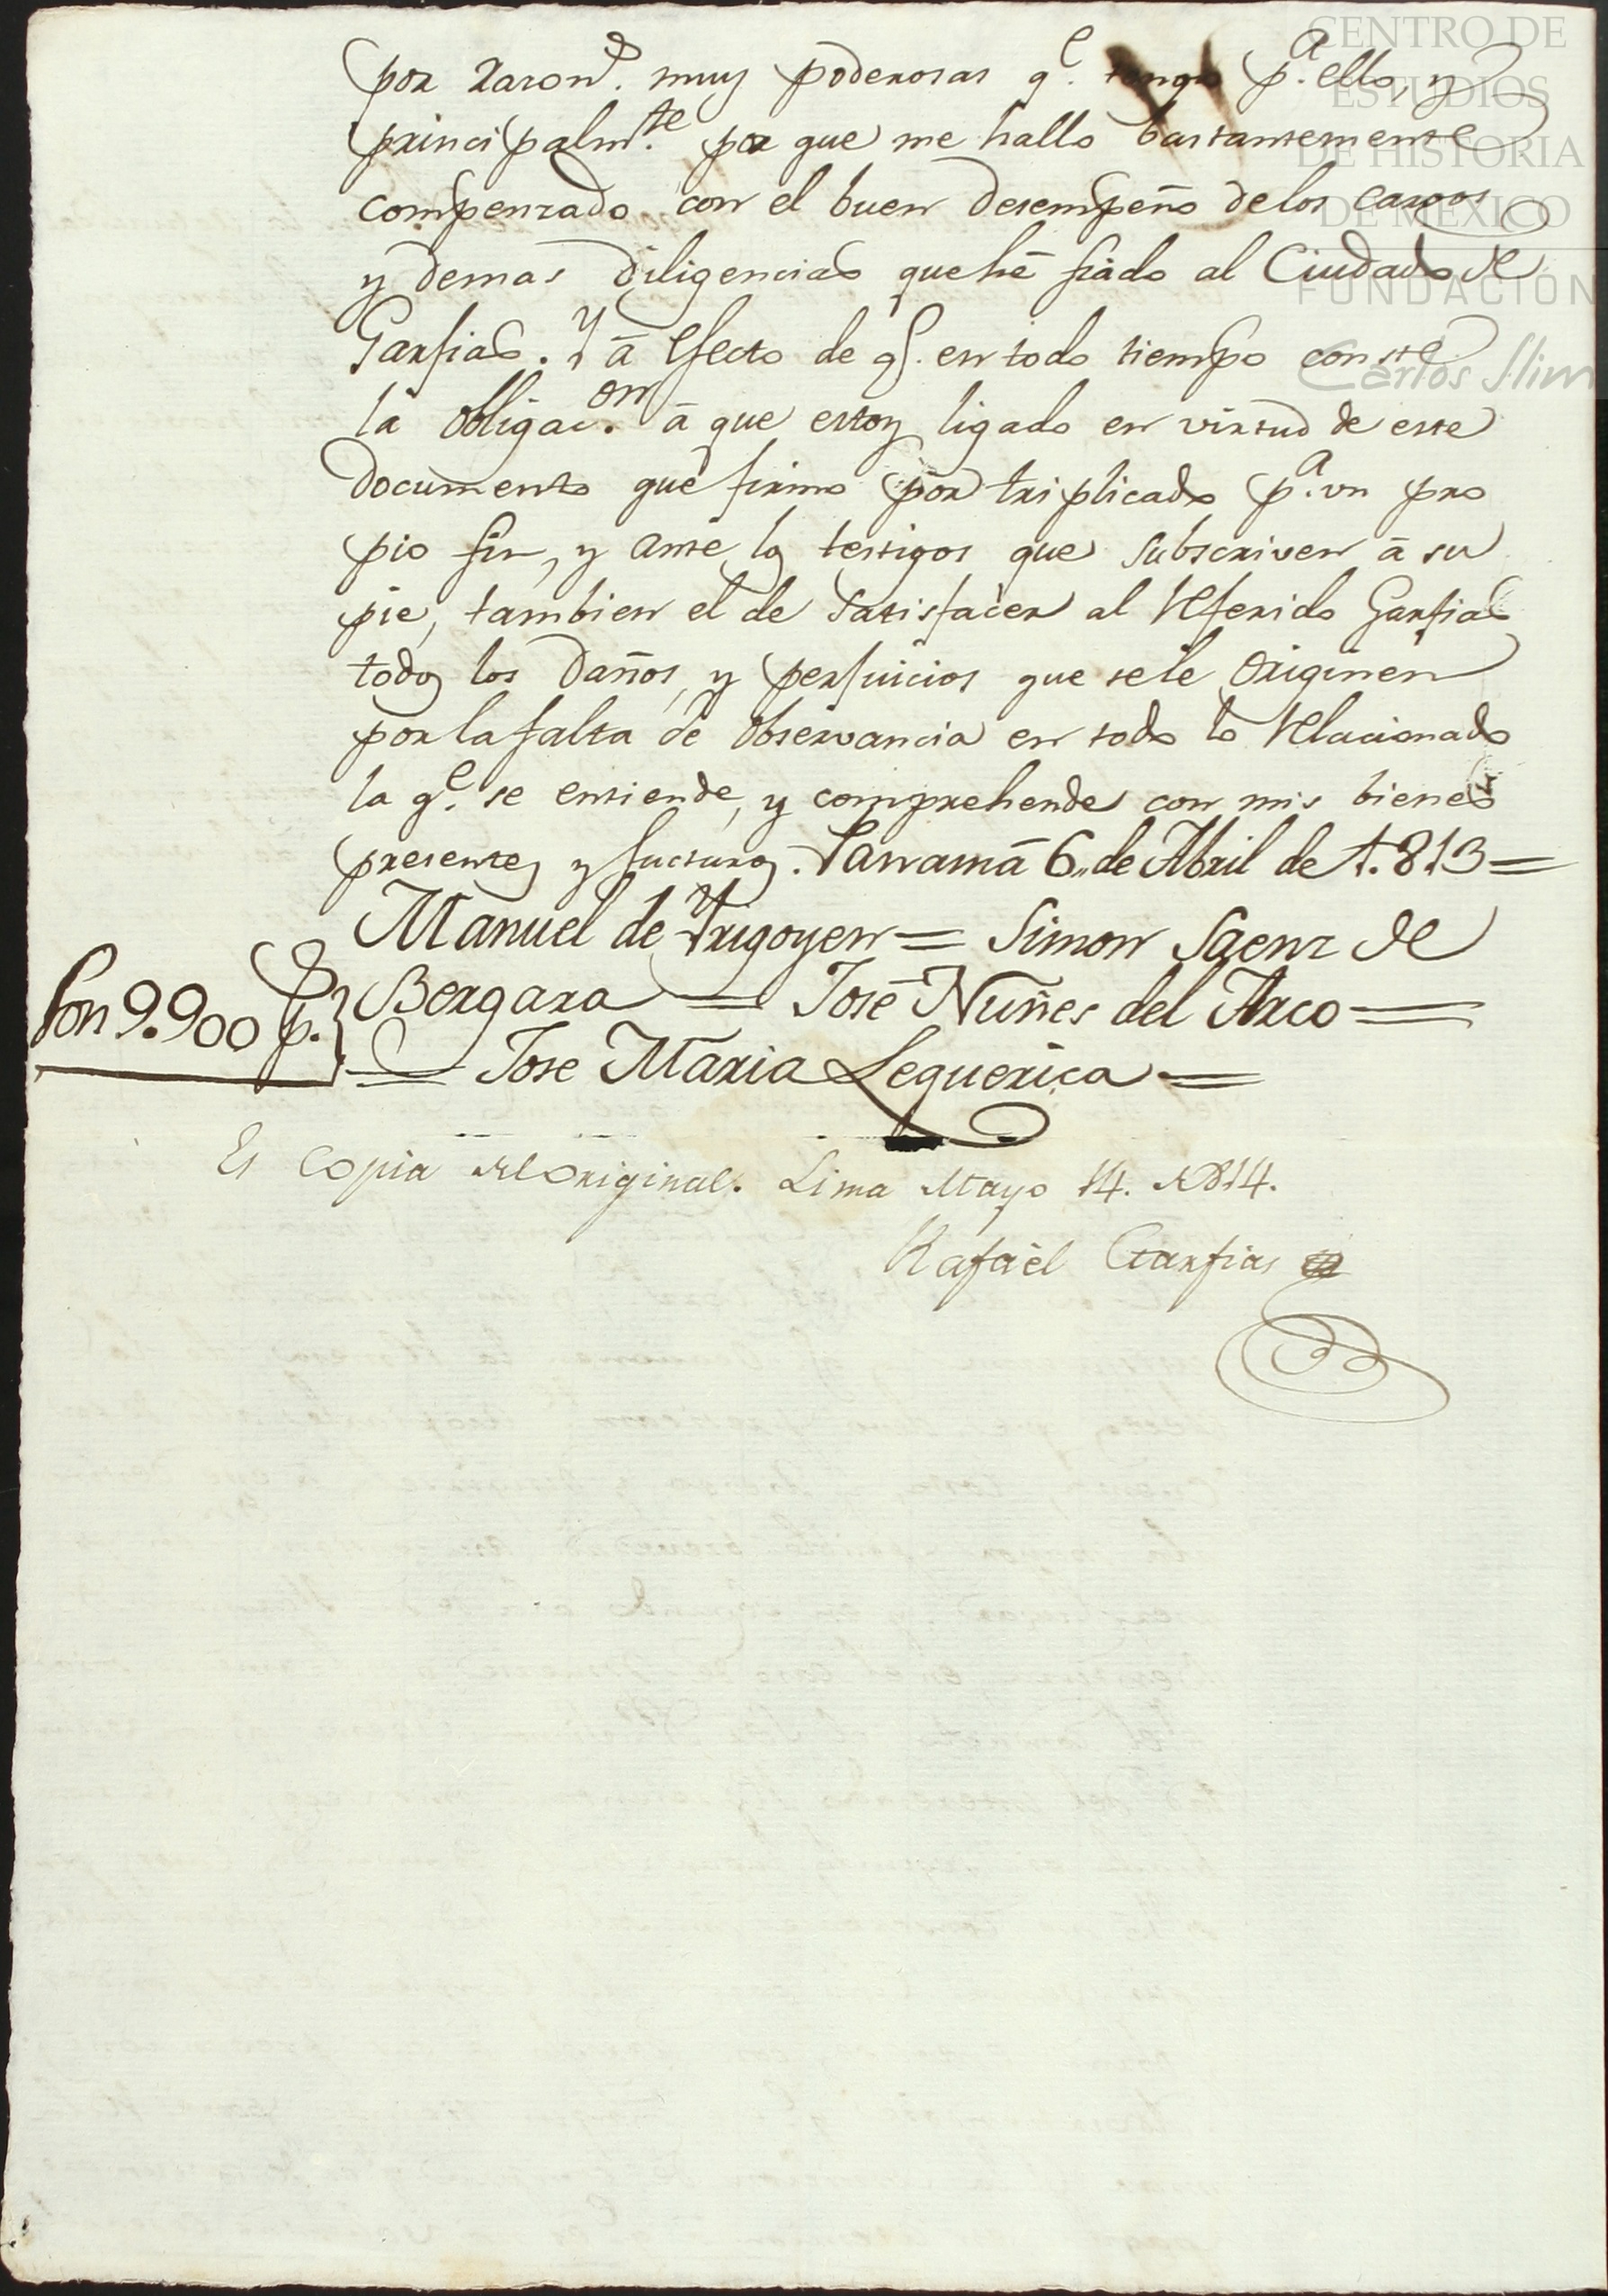 CENTRO DE
ESTUDIOS
DE HISTORIA
DE MÉXICO
FUNDACIÓN
Carlos Slim
por razon.s muy poderosas q.e tengo p.a ello, y
principalm.te por que me hallo bastantemente
compensado con el buen desempeño delos cargos
y demas diligencias que hé fiado al Ciudado de
Garfias. Y á efecto de q.e en todo tiempo conste
la obligac.on á que estoy ligado en virtud de este
documento que firmo por triplicado p.a un pro
pio fin, y ante los testigos que subscriven á su
pie, tambien el de satisfacer al referido Garfias
todos los daños, y perjuicios que sele originen
por la falta de observancia en todo lo relacionado
la q.e se entiende, y comprehende con mis bienes
presentes y fucturos. Panamá 6,, de Abril de 1.813=
Manuel de Yrigoyen= Simon Saenz de
Bergara= José Nuñes del Arco=
Son 9.900 p.s
= Jose Maria Lequerica=
Es copia del original. Lima Mayo 14. de 814.
Rafaèl Garfias